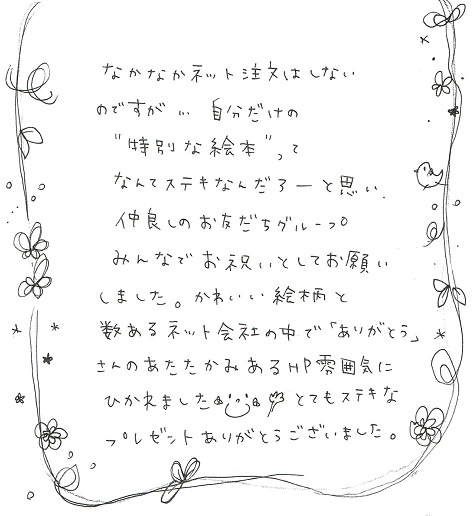 なかなかネット注文はしない
のですが… 自分だけの
"特別な絵本"って
なんてステキなんだろーと思い、
仲良しのお友だちグループ
みんなでお祝いとしてお願い
しました。かわいい絵柄と
数あるネット会社の中で「ありがとう」
さんのあたたかみあるHP雰囲気に
ひかれました とてもステキな
プレゼントありがとうございました。